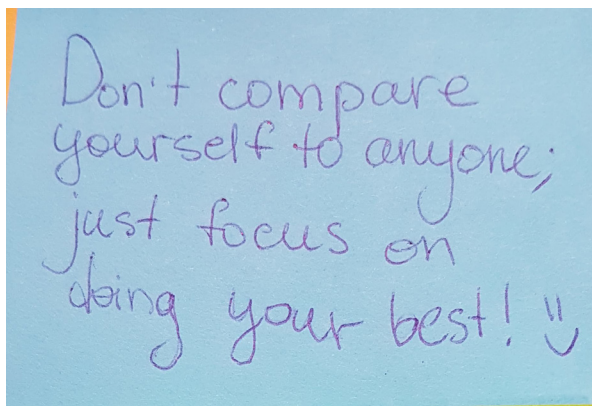 Don't compare
yourself to anyone;
just focus on
doing your best! :)